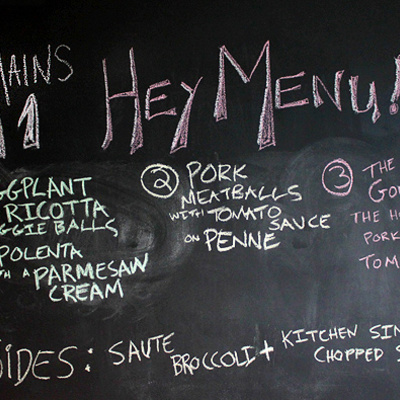 MAINS
HEY MENU!
GGPLANT
RICOTTA
GGIE BALLS
POLENTA
A PARMESAN
CREAM
2 PORK
MEATBALLS
WITH TOMATO
SAUCE
ON PENNE
3 THE
GO
THE HO
PORK
TOM
SIDES: SAUTE
BROCCOLI + KITCHEN SIN
CHOPPED S